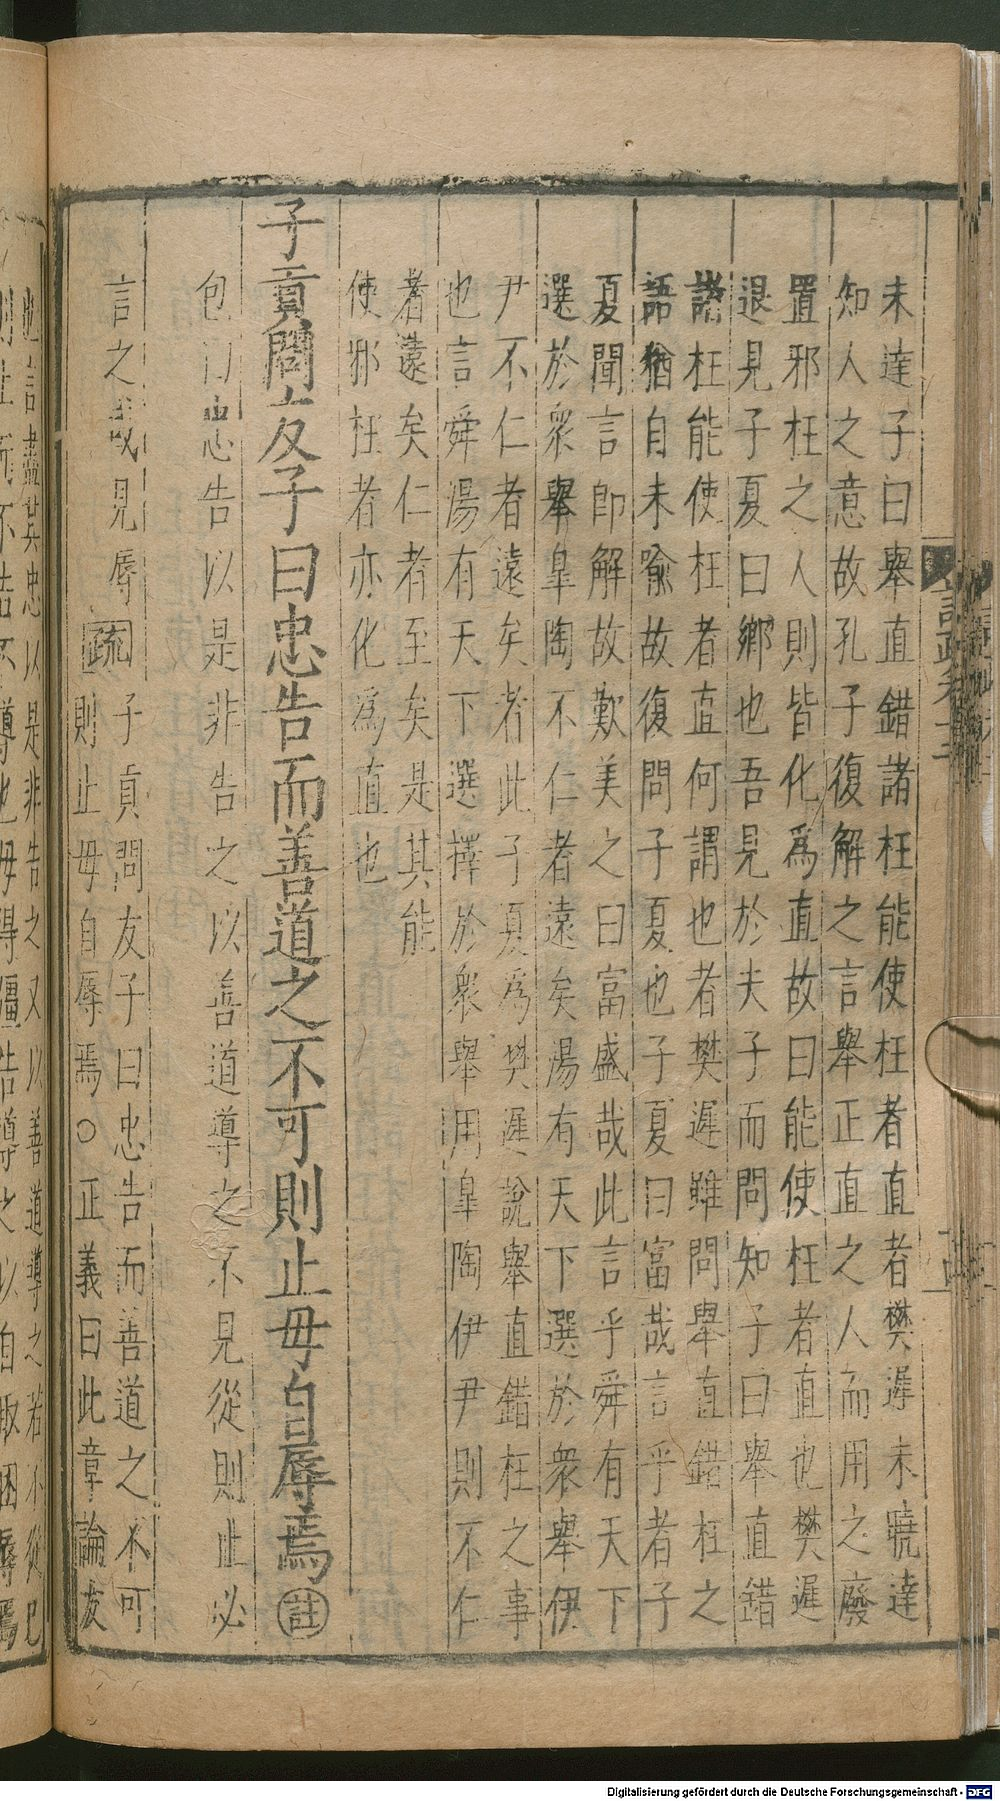 未達子曰舉直錯諸枉能使枉者直者樊遲未曉達
知人之意故孔子復解之言舉正直之人而用之廢
置邪枉之人則皆化爲直故曰能使枉者直也樊遲
退見子夏曰鄉也吾見於夫子而問知子曰舉直錯
諸枉能使枉者直何謂也者樊遲雖問舉直錯枉之
語猶自未喻故復問子夏也子夏曰富哉言乎者子
夏聞言即解故歎美之曰富盛哉此言乎舜有天下
選於衆舉皐陶不仁者遠矣湯有天下選於衆舉伊
尹不仁者遠矣者此子夏爲樊遲說舉直錯枉之事
也言舜湯有天下選擇於衆舉用皐陶伊尹則不仁
者遠矣仁者至矣是其能
使邪枉者亦化爲直也
子貢問友子曰忠告而善道之不可則止毋自辱焉註
包曰忠告以是非告之以善道導之不見從則止必
言之或見辱疏子貢問友子曰忠告而善道之不可
則止毋自辱焉○正義曰此章論友
也言盡其忠以是非告之又以善道導之若不從己
則止而不告不導也毋得彊告導之以自取困辱焉
Digitalisierung gefördert durch die Deutsche Forschungsgemeinschaft - DFG